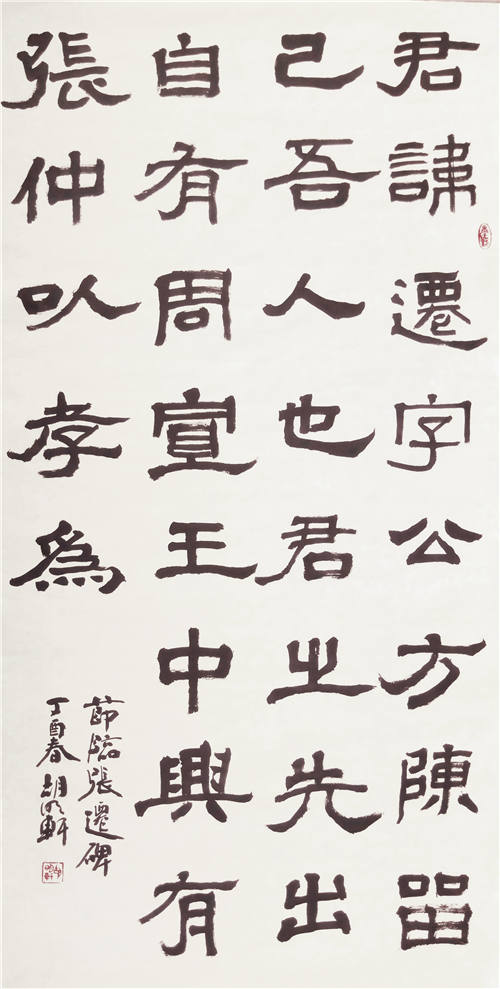 君諱遷字公方陳留
己吾人也君之先出
自有周宣王中興有
張仲以孝為
節臨張遷碑
丁酉春胡明軒